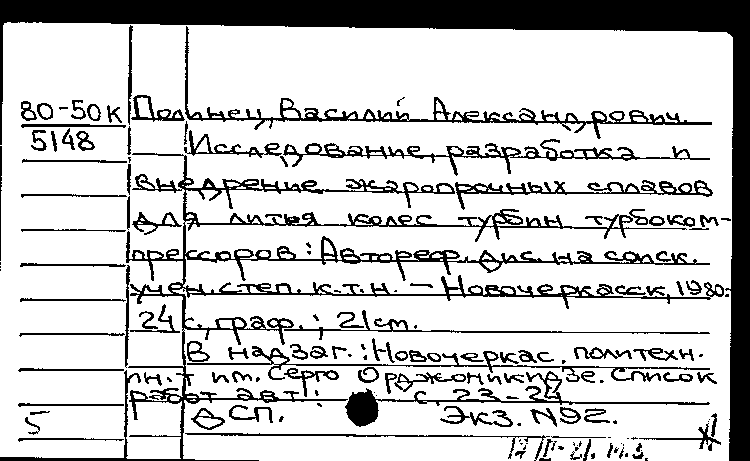 80-50к Полинец, Василий Александрович.
5148 Исследование, разработка и
внедрение жаропрочных сплавов
для литья колес турбин турбоком-
прессоров : Автореф. дис. на соиск.
учен. степ. к.т.н. - Новочеркасск, 1980.-
24 с., граф. ; 21 см.
В надзаг. : Новочеркас. политехн.
ин-т им. Серго Орджоникидзе. Список
работ авт.: с. 23-24
5 ДСП. Экз. N92.